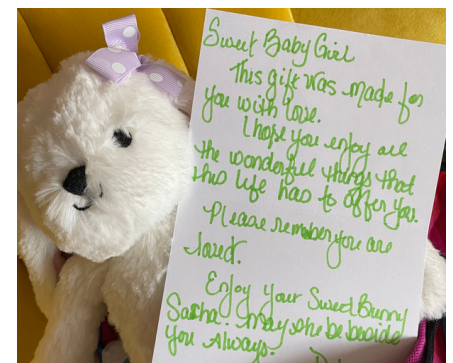 Sweet Baby Girl
This gift was made for
you with love.
I hope you enjoy all
the wonderful things that
this life has to offer you.
Please remember you are
loved.
Enjoy your Sweet Bunny
Sasha. May she be beside
you Always.